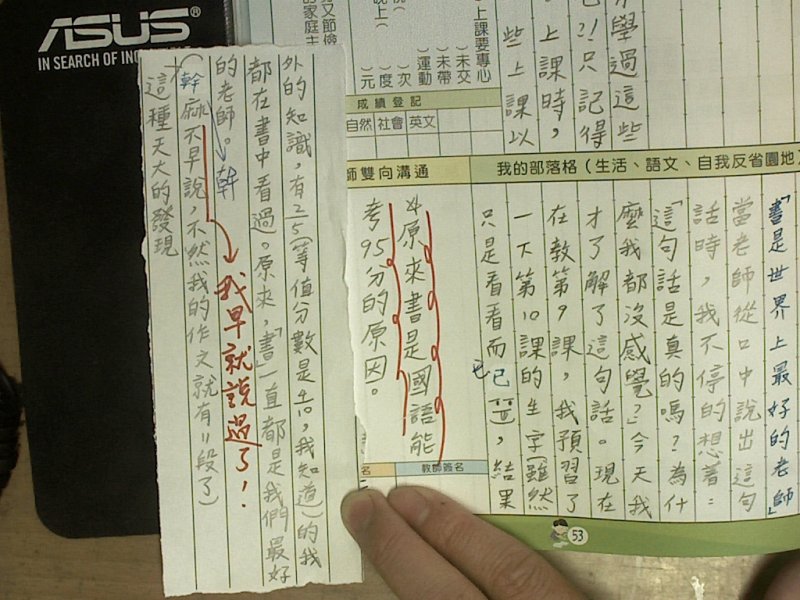 ASUS®
IN SEARCH OF IN
學過這些
?!只記得
。上課時，
些上課以
上課要專心
）未交
）未帶
）運動
）次
）度
）元
成績登記
自然
社會
英文
師雙向溝通
我的部落格（生活、語文、自我反省園地）
「書是世界上最好的老師」
當老師從口中說出這句
話時，我不停的想著：
「這句話是真的嗎？為什
麼我都沒感覺？」今天我
才了解了這句話。現在
在教第9課，我預習了
一下第10課的生字（雖然
只是看看而已
已
），結果
原來書是國語能
考95分的原因。
教師簽名
53
外的知識，有2/5（等值分數是4/10，我知道）的我
都在書中看過。原來，「書」一直都是我們最好
的老師。
幹
我早就說過了！
幹
麻不早說，不然我的作文就有11段了）
這種天大的發現